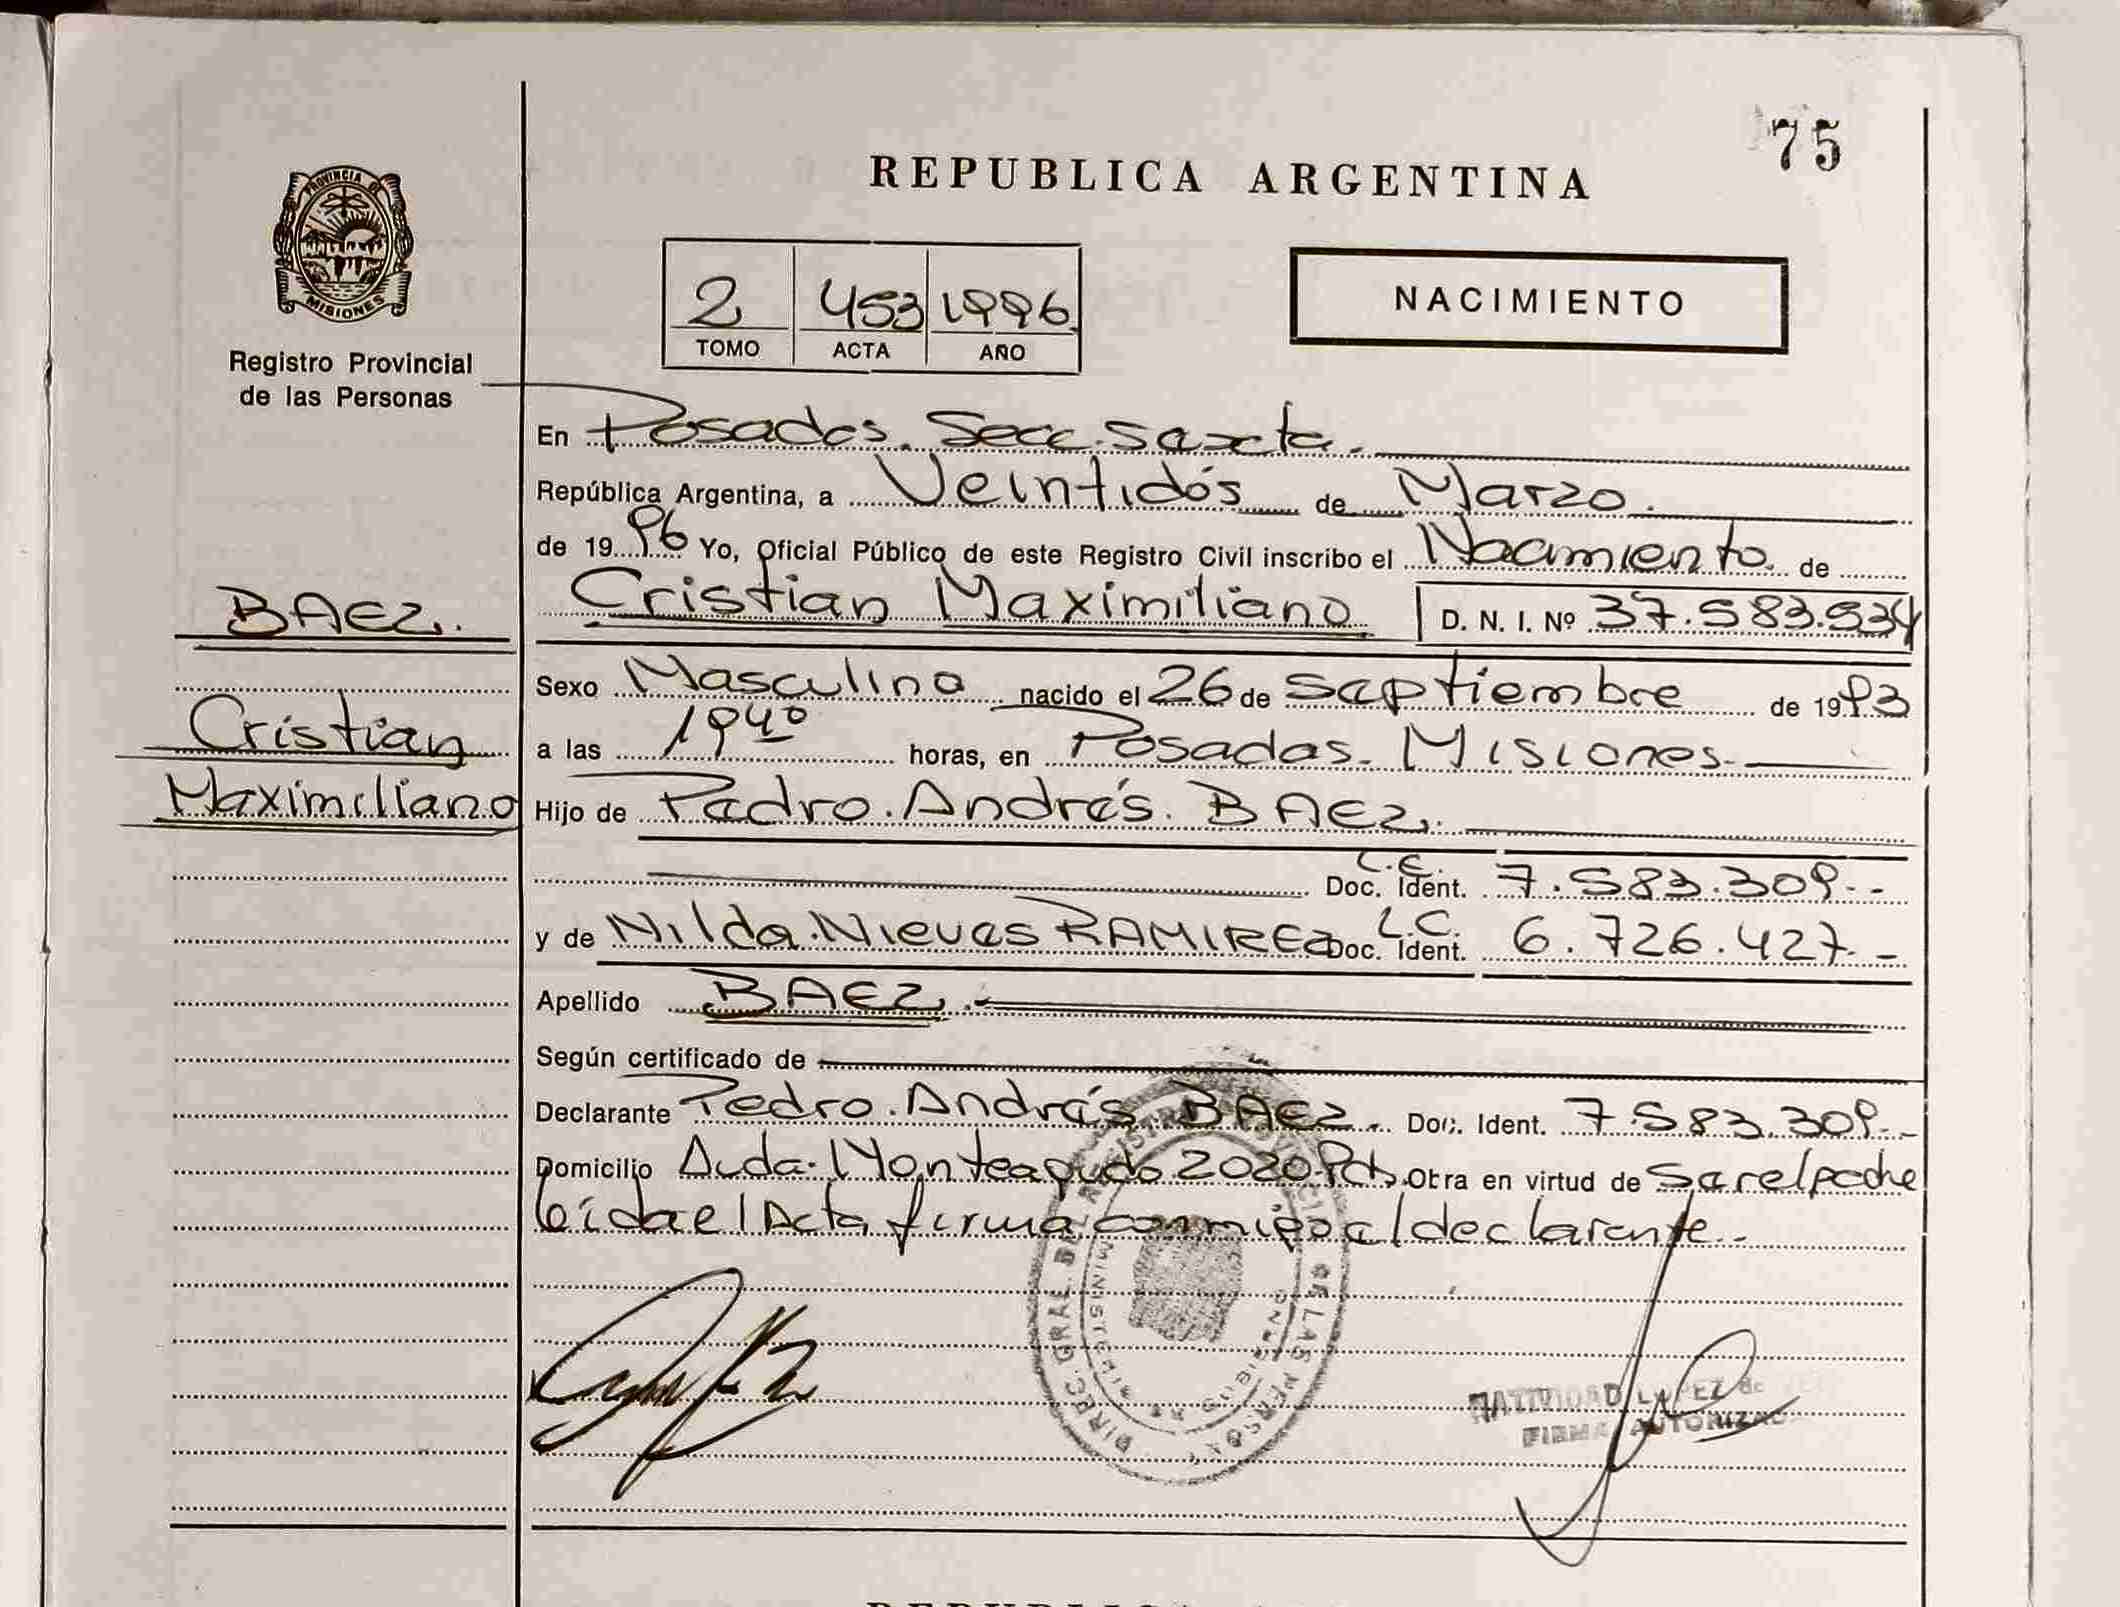 75
REPUBLICA ARGENTINA
PROVINCIA DE
MISIONES
Registro Provincial
de las Personas
2 453 1996
TOMO ACTA AÑO
NACIMIENTO
En Posadas. Secc. Sexta.
República Argentina, a Veintidós de Marzo.
de 1996 Yo, Oficial Público de este Registro Civil inscribo el Nacimiento de
BAEZ.
Cristian Maximiliano D. N. I. Nº 37.583.934
Sexo Masculino nacido el 26 de Septiembre de 1993
Cristian
a las 19 40 horas, en Posadas. Misiones.
Maximiliano
Hijo de Pedro. Andrés. BAEZ.
L.E. Doc. Ident. 7.583.309.-
y de Nilda. Nieves RAMIREZ L.C. Doc. Ident. 6.726.427.-
Apellido BAEZ.-
Según certificado de
Declarante Pedro. Andrés BAEZ. Doc. Ident. 7.583.309.-
Domicilio Avda. Monteagudo 2020. Pdas. Otra en virtud de Ser el padre
leída el Acta, firma conmigo el declarante.-
DIREC. GRAL. DEL REGISTRO PROVINCIAL DE LAS PERSONAS
MINISTERIO DE GOBIERNO
NATIVIDAD LOPEZ de
FIRMA AUTORIZADA